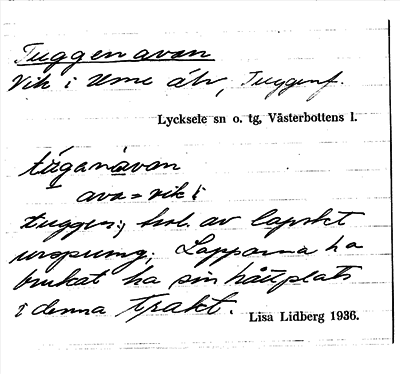 Tuggenavan
Vik i Ume älv, Tuggenf.
Lycksele sn o. tg, Västerbottens l.
tùganàvan
ava = vik i
tuggen; av lapskt
ursprung. Lapparna ha
brukat ha sin hållplats
i denna trakt.
Lisa Lidberg 1936.